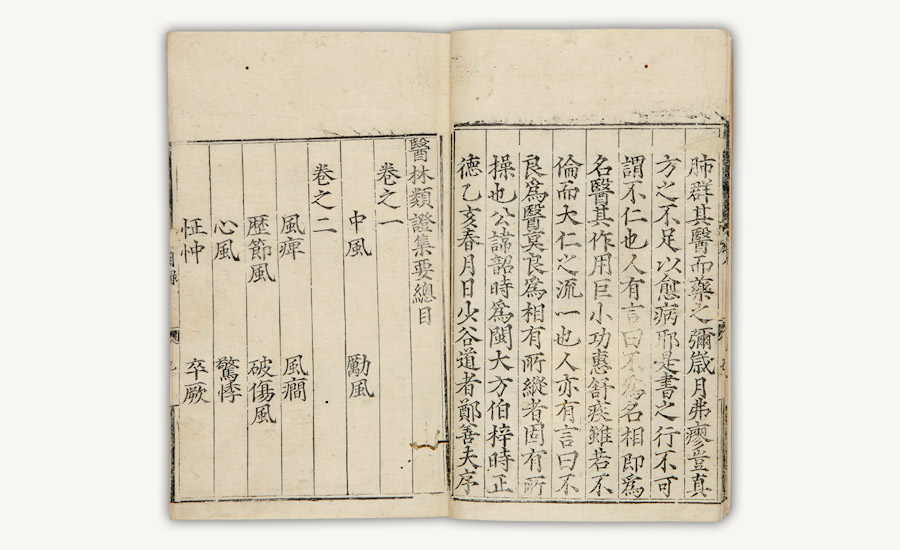 肺群其醫而藥之彌歲月弗瘳豈真
方之不足以愈病耶是書之行不可
謂不仁也人有言曰不為名相即爲
名醫其作用巨小功惠舒疾雖若不
倫而大仁之流一也人亦有言曰不
良爲醫莫良爲相有所縱者固有所
操也公諱韶時爲閩大方伯梓時正
德乙亥春月日少谷道者鄭善夫序
醫林類證集要總目
卷之一
中風 勵風
卷之二
風痺 風癎
歷節風 破傷風
心風 驚悸
怔忡 卒厥
目錄